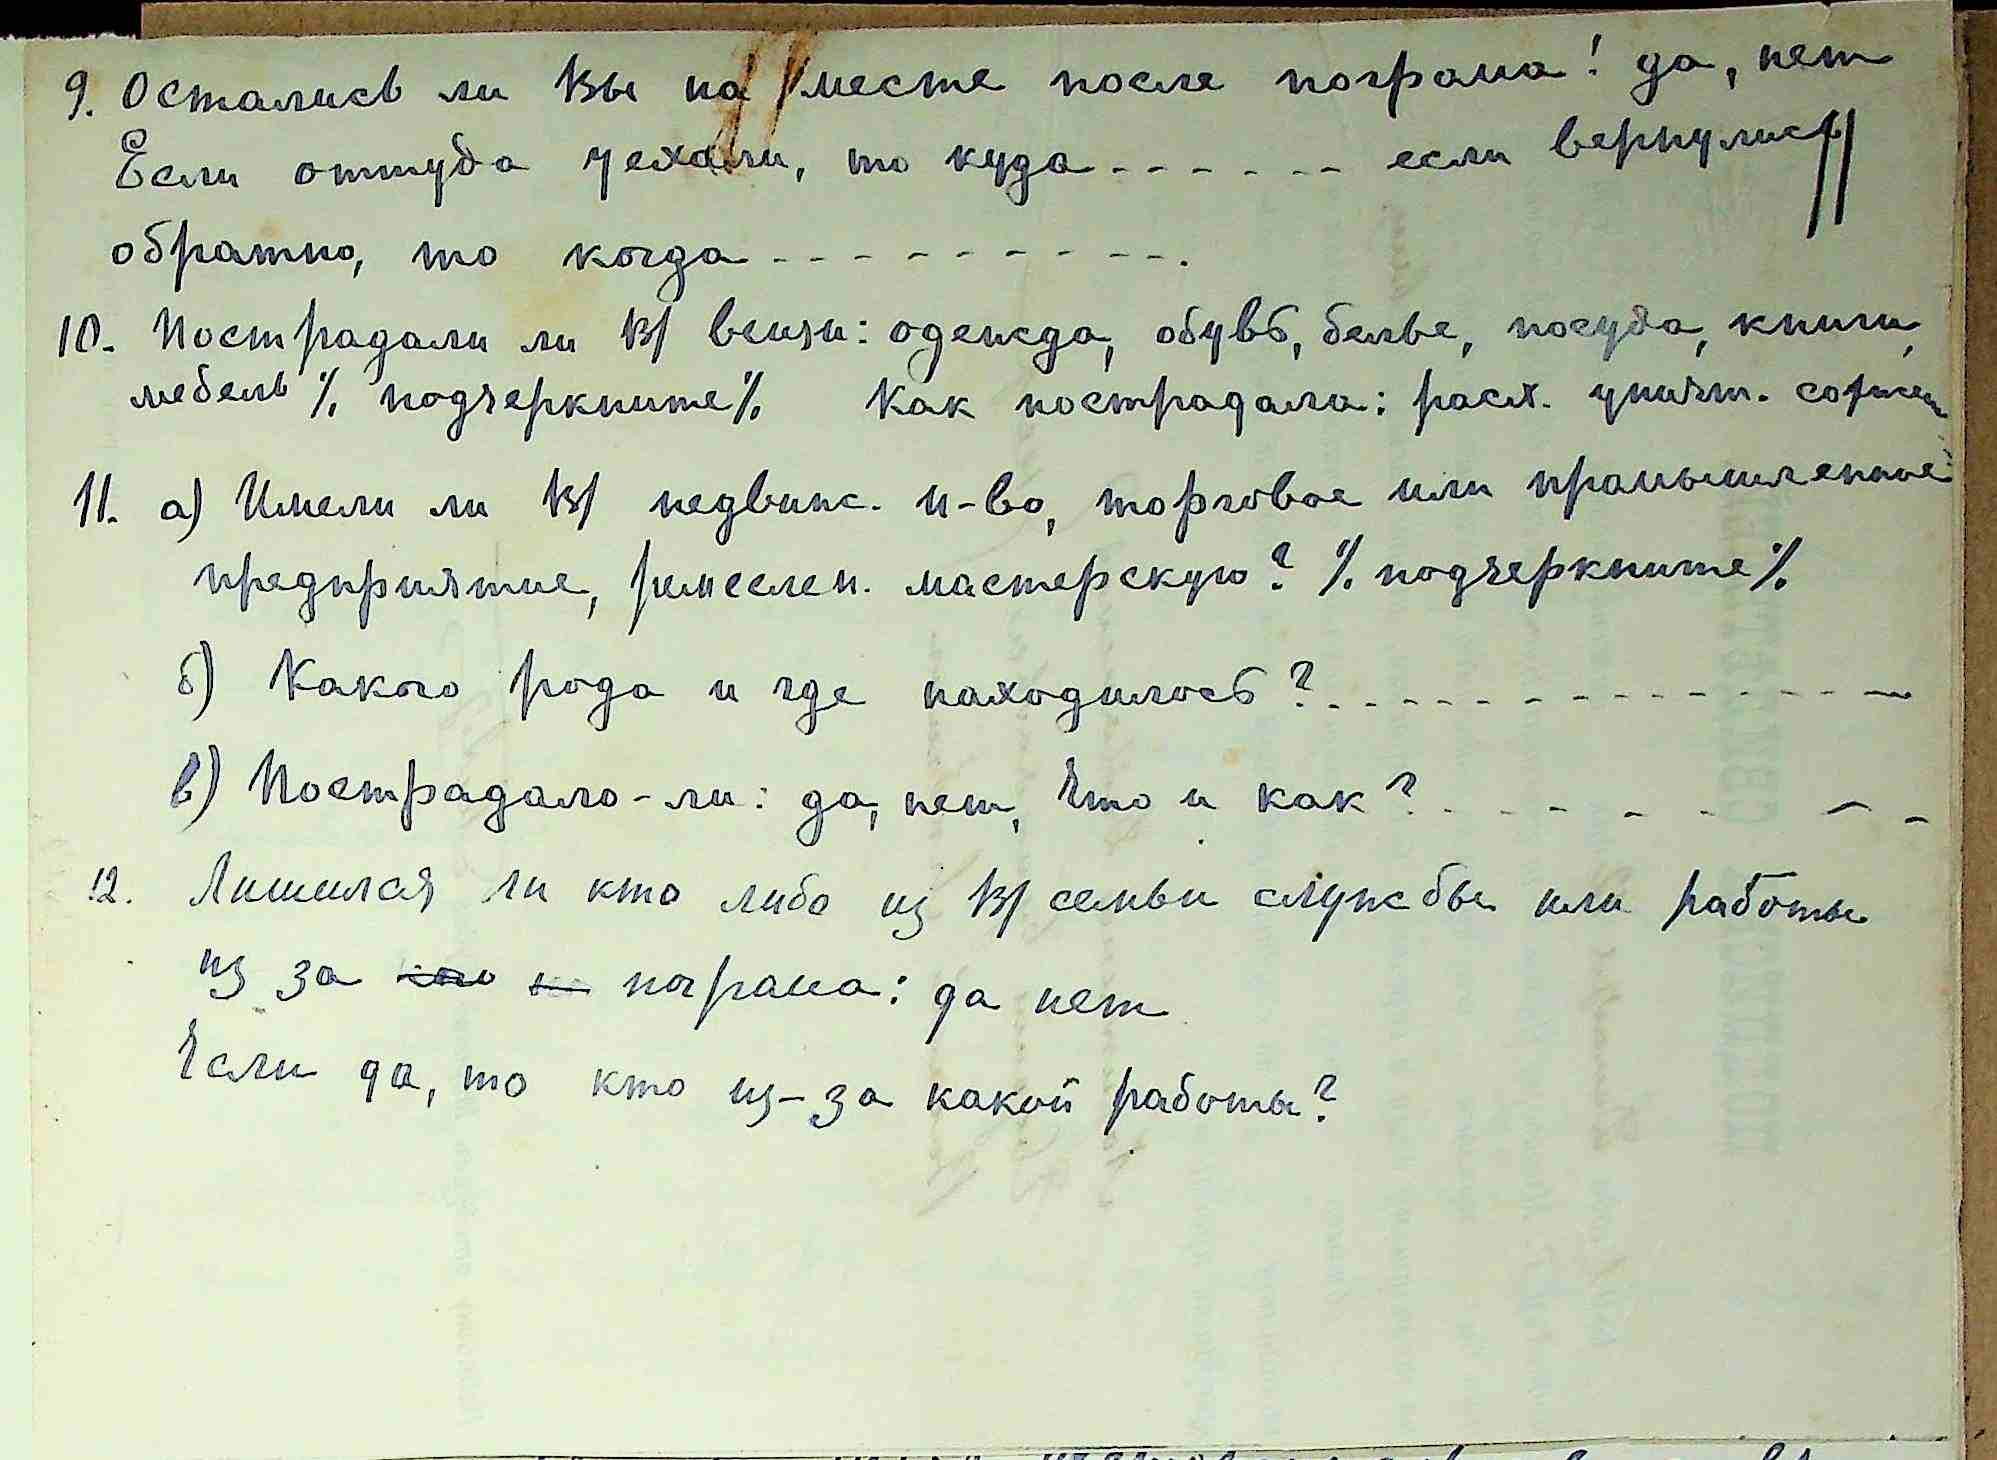 9. Остались ли Вы на месте после погрома! да, нет
Если оттуда уехали, то куда - - - - - - если вернулись
обратно, то когда - - - - - - - - - - .
10. Пострадали ли В/ вещи: одежда, обувь, белье, посуда, книги,
мебель % подчеркните % Как пострадала: расх. уничт. сожжен
11. а) Имели ли В/ недвиж. и-во, торговое или промышленное
предприятие, ремеслен. мастерскую? % подчеркните %
б) Какого рода и где находилось? - - - - - - - - - - - - - - -
в) Пострадало-ли: да, нет, Что и как? - - - - - - -
12. Лишился ли кто либо из В/ семьи службы или работы
из за погрома: да нет
Если да, то кто из-за какой работы?